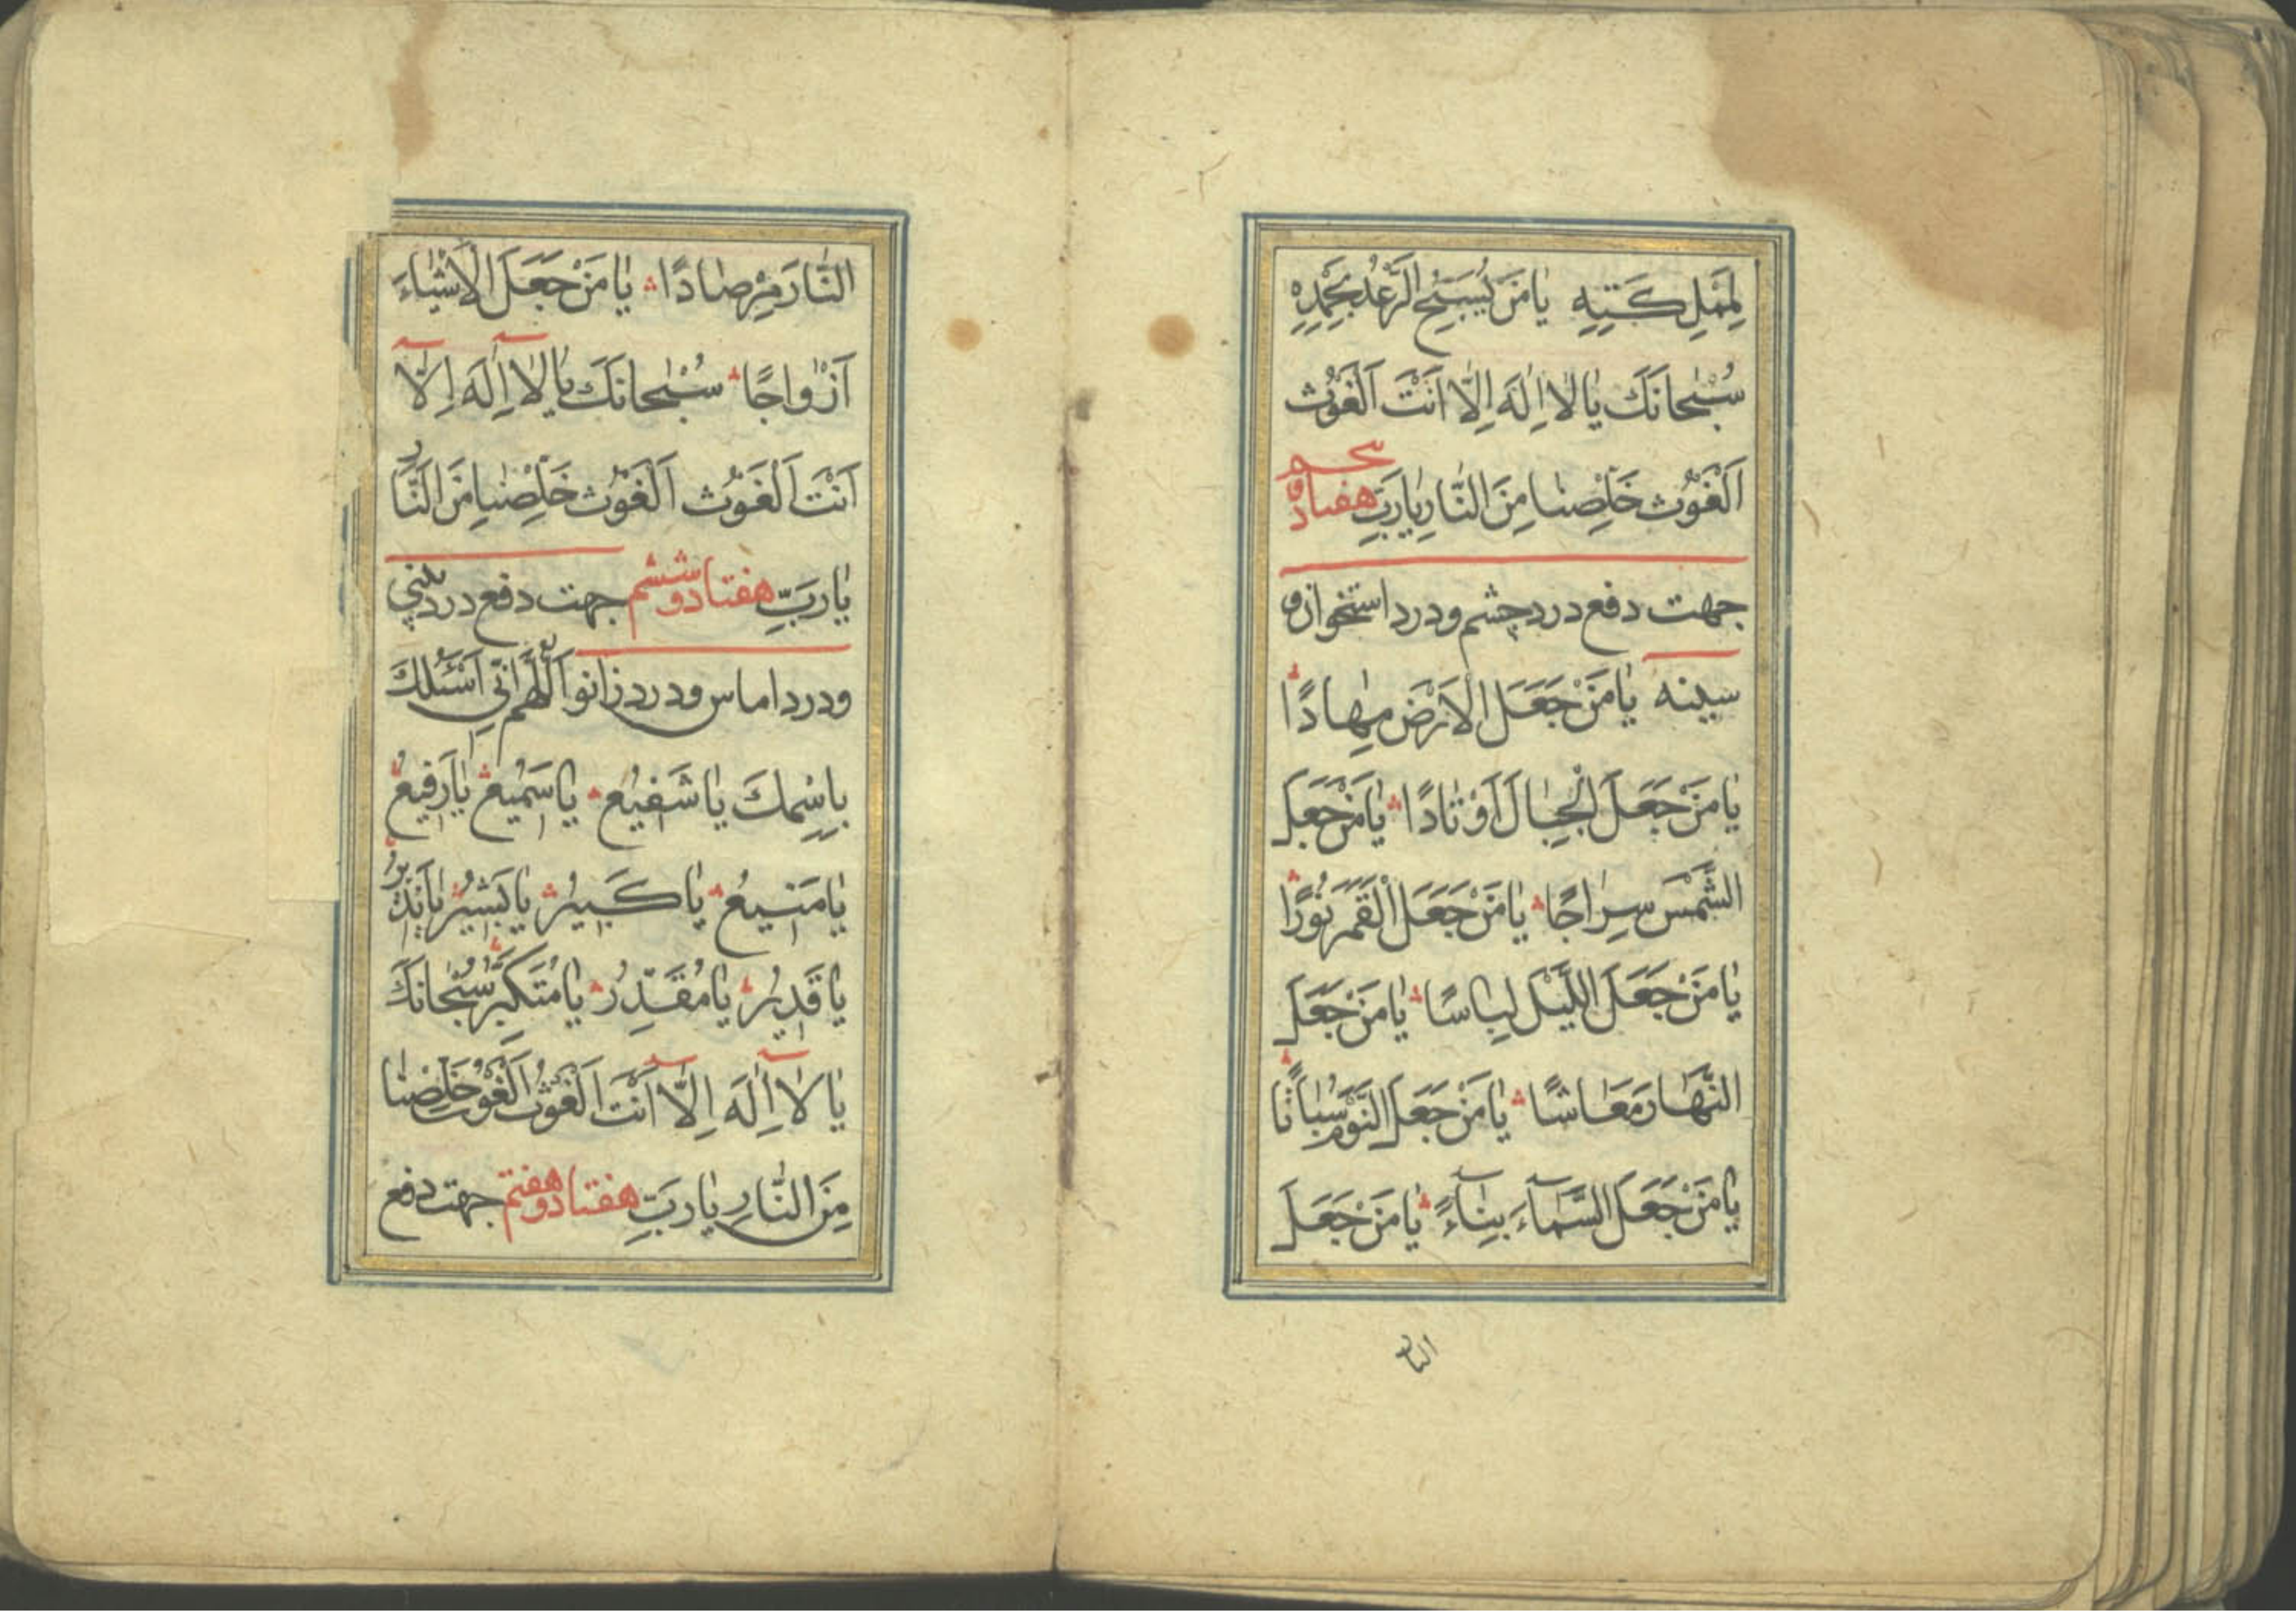 لِمَلٰئِكَتِهِ يٰا مَنْ يُسَبِّحُ الرَّعْدُ بِحَمْدِهِ
سُبْحٰانَكَ يٰا لٰا اِلٰهَ اِلَّا اَنْتَ اَلْغَوْث
اَلْغَوْث خَلِّصْنٰا مِنَ النّٰارِ يٰا رَبِّ هفتاد و پنجم
جهت دفع درد چشم و درد استخوان و
سینه يٰا مَنْ جَعَلَ الْاَرْضَ مِهٰادًا
يٰا مَنْ جَعَلَ الْجِبٰالَ اَوْتٰادًا يٰا مَنْ جَعَلَ
الشَّمْسَ سِرٰاجًا يٰا مَنْ جَعَلَ الْقَمَرَ نُورًا
يٰا مَنْ جَعَلَ اللَّيْلَ لِبٰاسًا يٰا مَنْ جَعَلَ
النَّهٰارَ مَعٰاشًا يٰا مَنْ جَعَلَ النَّوْمَ سُبٰاتًا
يٰا مَنْ جَعَلَ السَّمٰآءَ بِنٰآءً يٰا مَنْ جَعَلَ
النار
النّٰارَ مِرْصٰادًا يٰا مَنْ جَعَلَ الْاَشْيٰاءَ
اَزْوٰاجًا سُبْحٰانَكَ يٰا لٰا اِلٰهَ اِلّٰا
اَنْتَ اَلْغَوْث اَلْغَوْث خَلِّصْنٰا مِنَ النّٰارِ
يٰا رَبِّ هفتاد و ششم جهت دفع درد بینی
و درد اماس و درد زانو اَللّٰهُمَّ اِنّی اَسْئَلُكَ
بِاسْمِكَ يٰا شَفيٖعُ يٰا سَميٖعُ يٰا رَفيٖعُ
يٰا مَنيٖعُ يٰا كَبيٖرُ يٰا بَشيٖرُ يٰا نَذيٖرُ
يٰا قَديٖرُ يٰا مُقَدِّرُ يٰا مُتَكَبِّرُ سُبْحٰانَكَ
يٰا لٰا اِلٰهَ اِلّٰا اَنْتَ اَلْغَوْثُ اَلْغَوْث خَلِّصْنٰا
مِنَ النّٰارِ يٰا رَبِّ هفتاد و هفتم جهت دفع